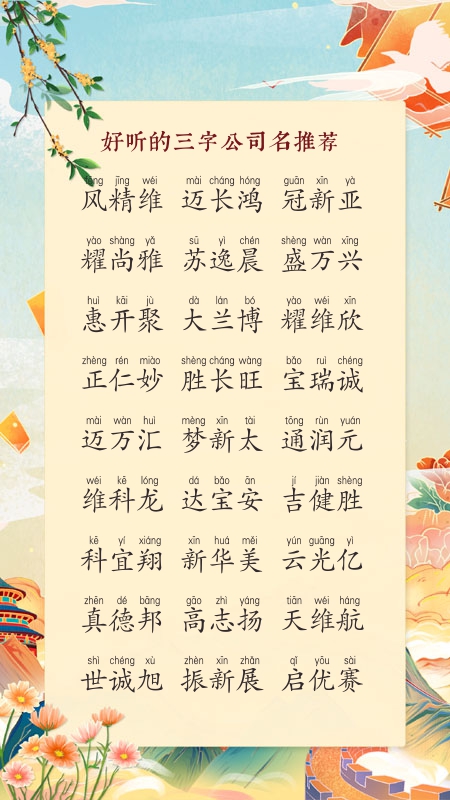 好听的三字公司名推荐
fēng jīng wéi mài cháng hóng guān xīn yà
风精维 迈长鸿 冠新亚
yào shàng yǎ sū yì chén shèng wàn xīng
耀尚雅 苏逸晨 盛万兴
huì kāi jù dà lán bó yào wéi xīn
惠开聚 大兰博 耀维欣
zhèng rén miào shèng cháng wàng bǎo ruì chéng
正仁妙 胜长旺 宝瑞诚
mài wàn huì mèng xīn tài tōng rùn yuán
迈万汇 梦新太 通润元
wéi kē lóng dá bǎo ān jí jiàn shèng
维科龙 达宝安 吉健胜
kē yí xiáng xīn huá měi yún guāng yì
科宜翔 新华美 云光亿
zhēn dé bāng gāo zhì yáng tiān wéi háng
真德邦 高志扬 天维航
shì chéng xù zhèn xīn zhǎn qǐ yōu sài
世诚旭 振新展 启优赛